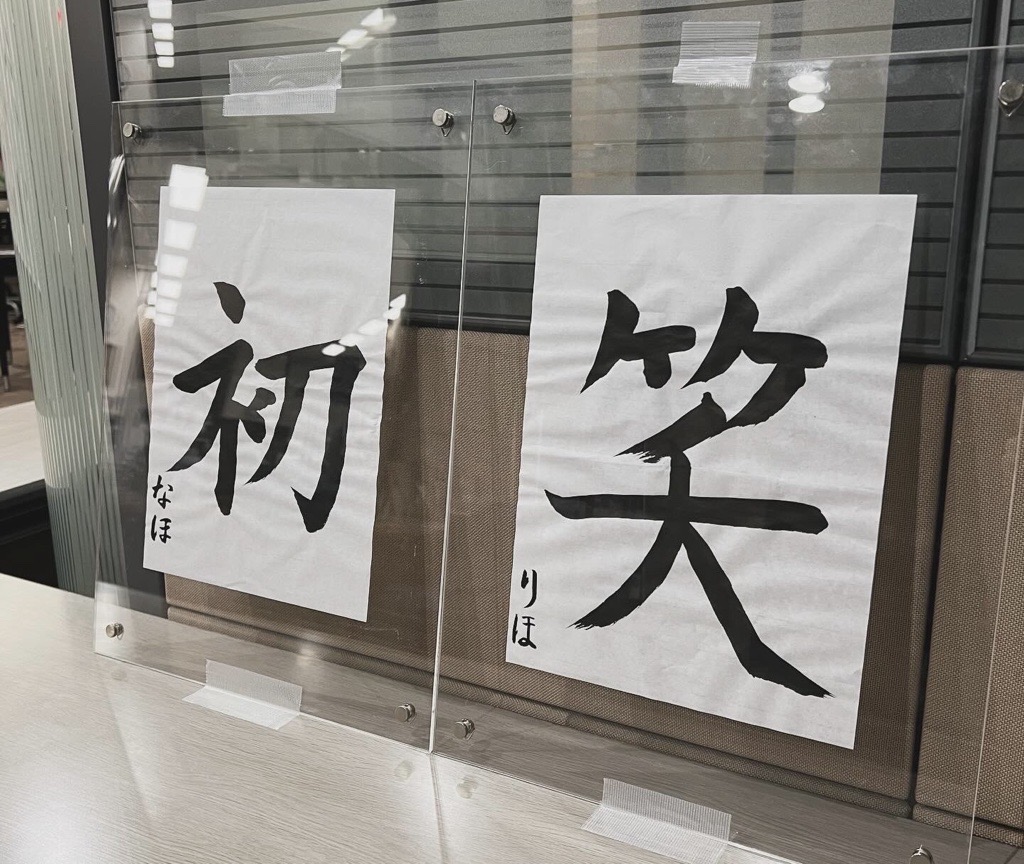 初
なほ
笑
りほ